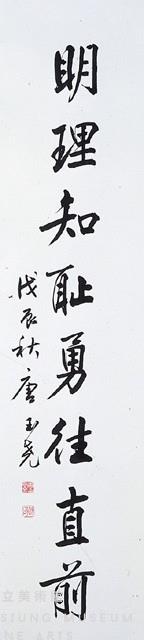 明理知耻勇往直前
戊辰秋唐玉堯
立美術
SIUNG MUSEUM
NE ARTS